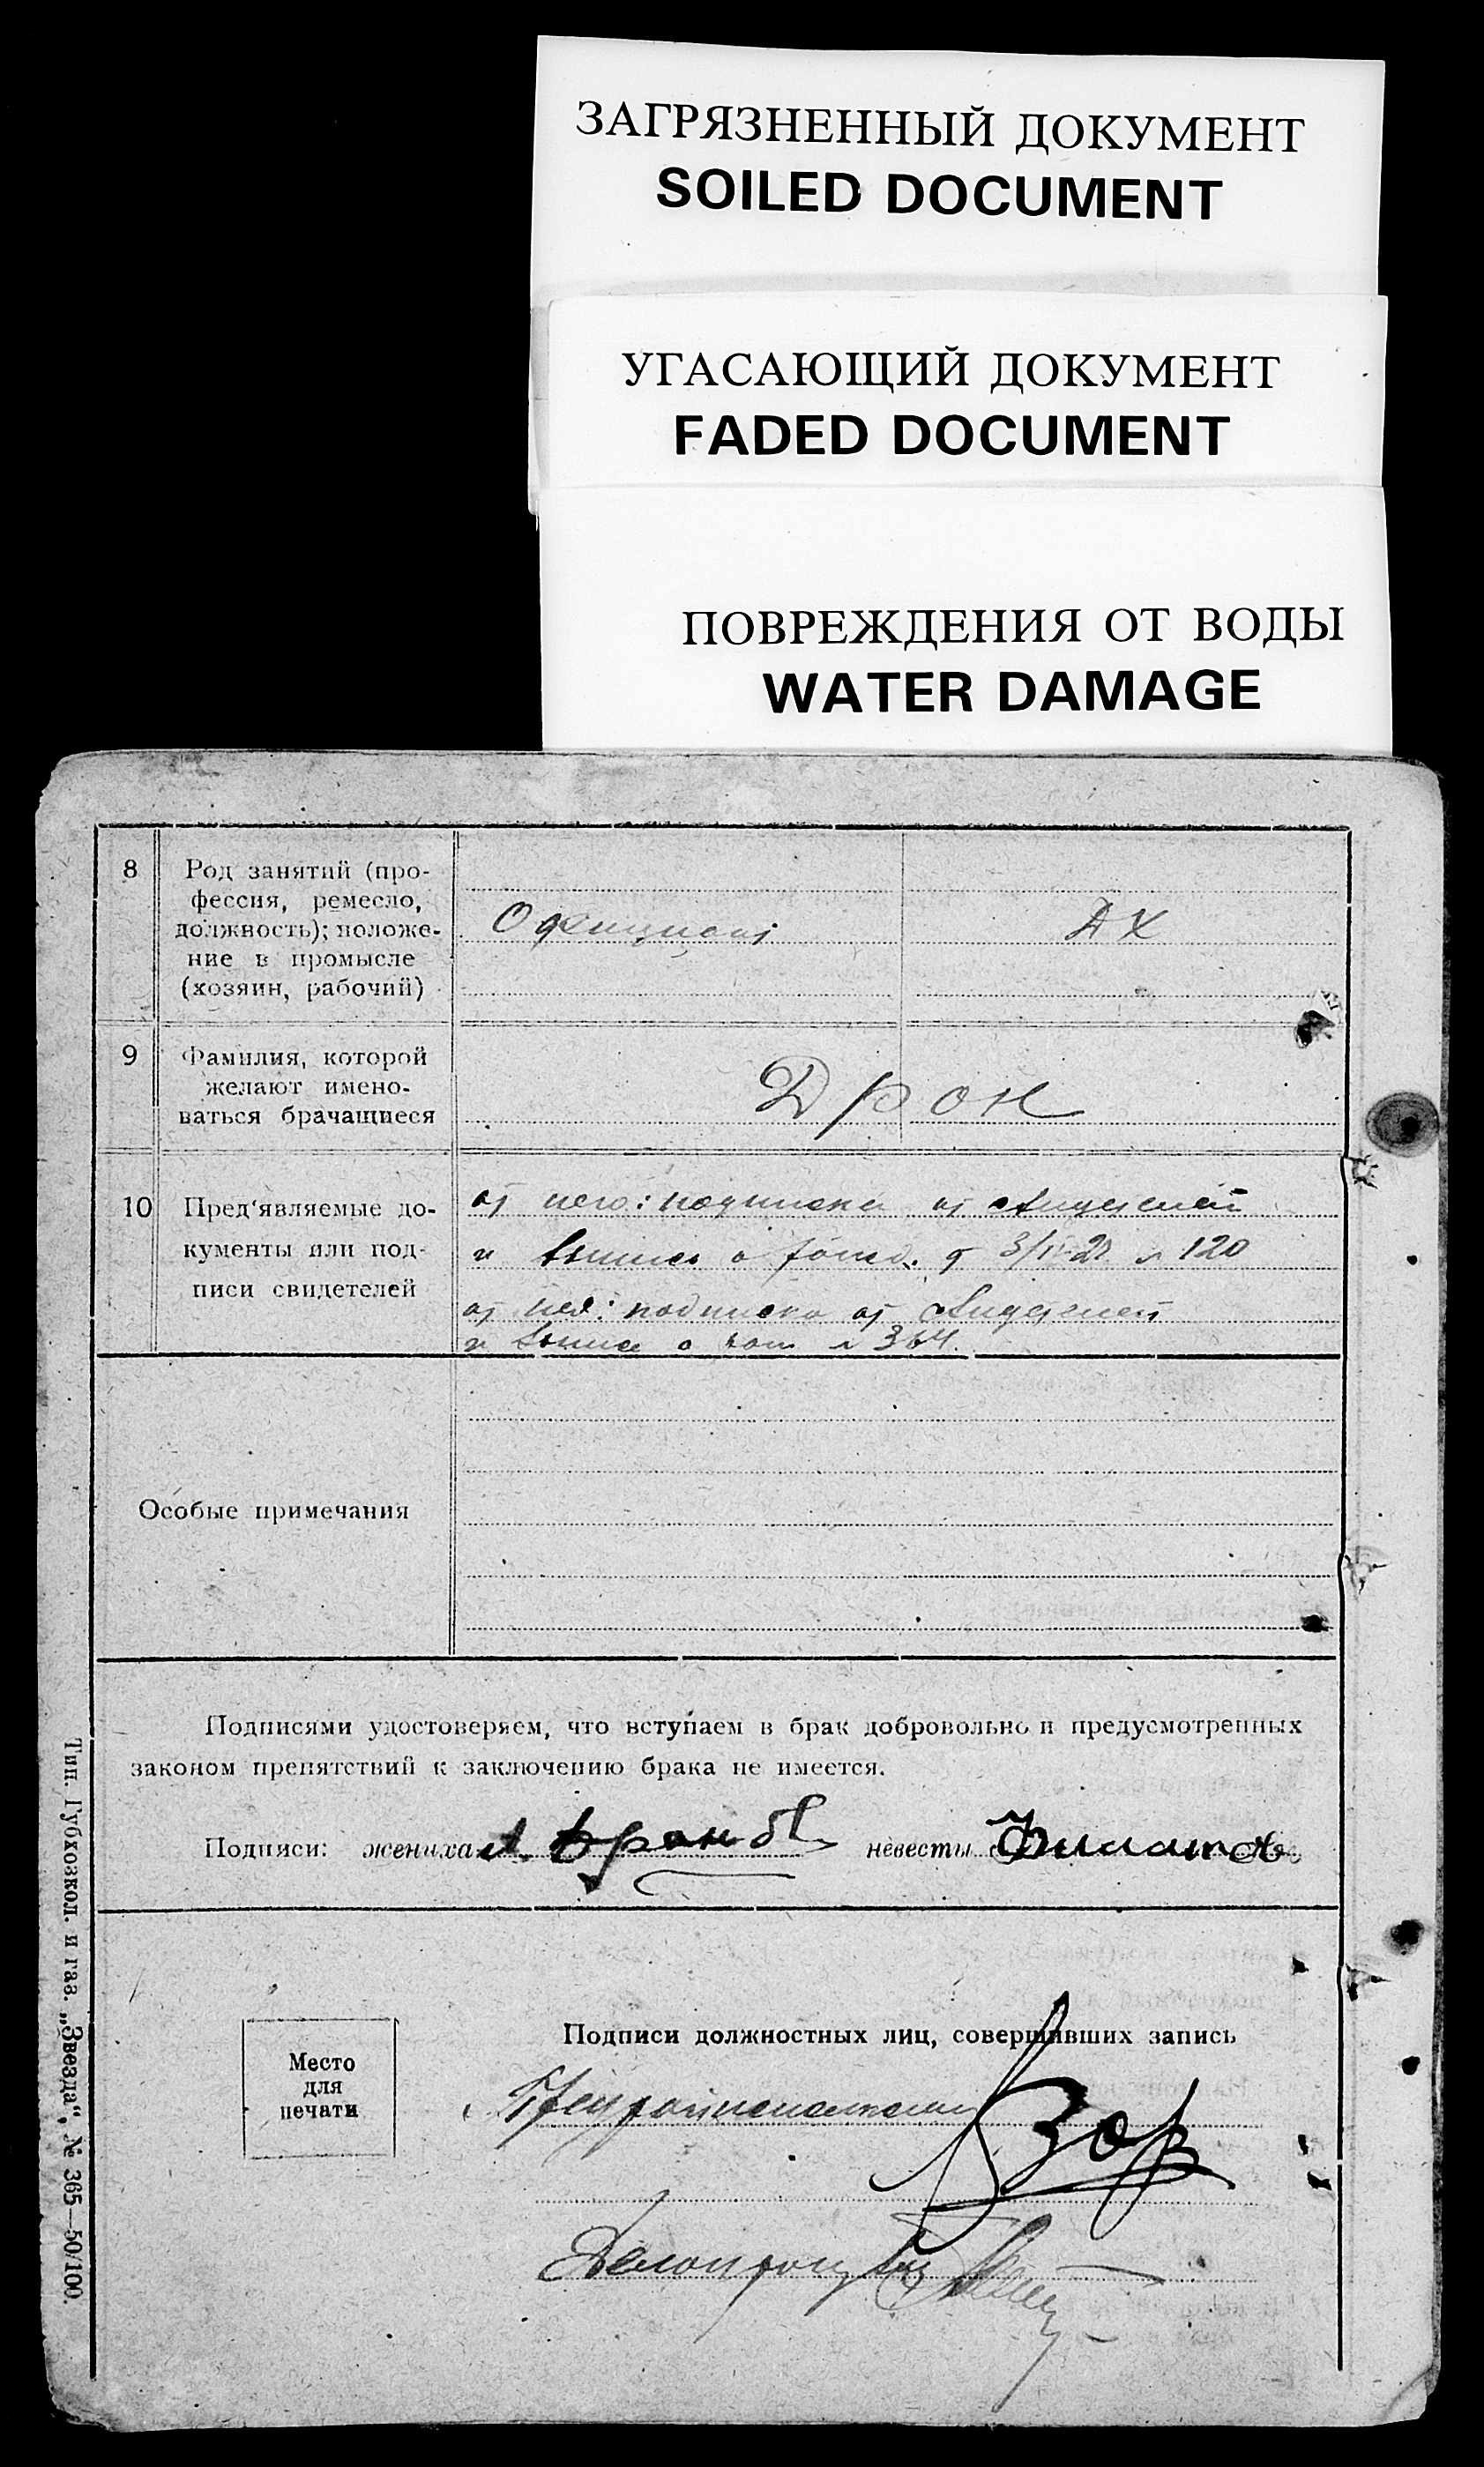 ЗАГРЯЗНЕННЫЙ ДОКУМЕНТ
SOILED DOCUMENT
УГАСАЮЩИЙ ДОКУМЕНТ
FADED DOCUMENT
ПОВРЕЖДЕНИЯ ОТ ВОДЫ
WATER DAMAGE
8 Род занятий (про-
фессия, ремесло,
должность); положе-
ние в промысле
(хозяин, рабочий)
Официант ДХ
9 Фамилия, которой
желают имено-
ваться брачащиеся
Дрон
10 Пред'являемые до-
кументы или под-
писи свидетелей
от него: подписка от
и выпись о 3/IV-22 № 120
от нея: подписка от
и выпись о № 364.
Особые примечания
Подписями удостоверяем, что вступаем в брак добровольно и предусмотренных
законом препятствий к заключению брака не имеется.
Подписи: жениха невесты
Подписи должностных лиц, совершивших запись
Место
для
печати
Делопроизв
Тип. Губхозкол. и газ. „Звезда“, № 365—50/100.